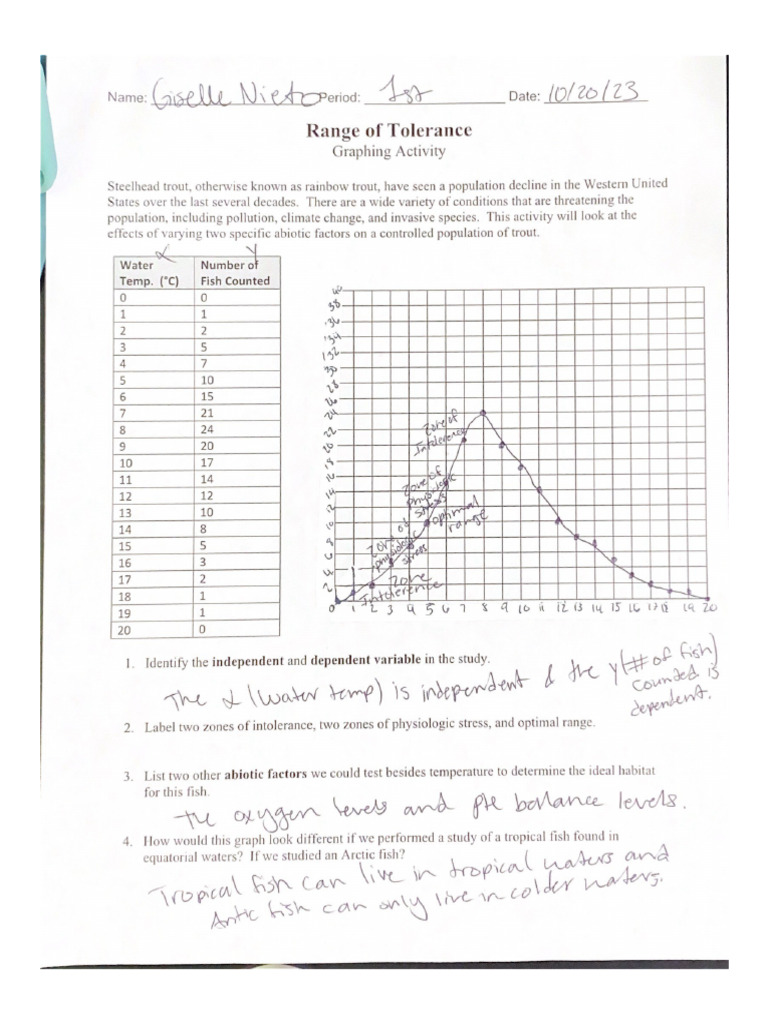 Name: Giselle Nieto Period: 1st Date: 10/20/23
Range of Tolerance
Graphing Activity
Steelhead trout, otherwise known as rainbow trout, have seen a population decline in the Western United
States over the last several decades. There are a wide variety of conditions that are threatening the
population, including pollution, climate change, and invasive species. This activity will look at the
effects of varying two specific abiotic factors on a controlled population of trout.
x y
Water Number of
Temp. (°C) Fish Counted
0 0
1 1
2 2
3 5
4 7
5 10
6 15
7 21
8 24
9 20
10 17
11 14
12 12
13 10
14 8
15 5
16 3
17 2
18 1
19 1
20 0
40
38
36
34
32
30
28
26
24
22
20
18
16
14
12
10
8
6
4
2
Zone of
Intolerence
Zone of
physiologic
stress
optimal
range
Zone of
physiologic
stress
Zone
Intolerence
0 1 2 3 4 5 6 7 8 9 10 11 12 13 14 15 16 17 18 19 20
1. Identify the independent and dependent variable in the study.
The x (water temp) is independent & the y (# of fish)
counted is
dependent.
2. Label two zones of intolerance, two zones of physiologic stress, and optimal range.
3. List two other abiotic factors we could test besides temperature to determine the ideal habitat
for this fish.
the oxygen levels and ballance levels.
4. How would this graph look different if we performed a study of a tropical fish found in
equatorial waters? If we studied an Arctic fish?
Tropical fish can live in tropical waters and
Artic fish can only live in colder waters.